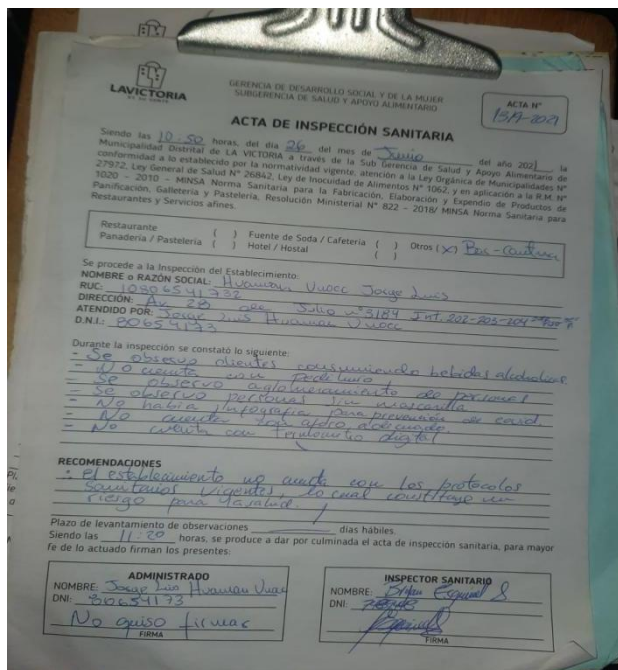 LAVICTORIA
GERENCIA DE DESARROLLO SOCIAL Y DE LA MUJER
SUBGERENCIA DE SALUD Y APOYO ALIMENTARIO
ACTA N°
1319-2021
ACTA DE INSPECCIÓN SANITARIA
Siendo las 10:50 horas, del día 26 del mes de Junio del año 2021 la
Municipalidad Distrital de LA VICTORIA a través de la Sub Gerencia de Salud y Apoyo Alimentario de
conformidad a lo establecido por la normatividad vigente, atención a la Ley Orgánica de Municipalidades N°
27972, Ley General de Salud N° 26842, Ley de Inocuidad de Alimentos N° 1062, y en aplicación a la R.M. N°
1020 – 2010 – MINSA Norma Sanitaria para la Fabricación, Elaboración y Expendio de Productos de
Panificación, Galletería y Pastelería, Resolución Ministerial N° 822 – 2018/ MINSA Norma Sanitaria para
Restaurantes y Servicios afines.
Restaurante ( ) Fuente de Soda / Cafetería ( ) Otros (X) Bar-cantina
Panadería / Pastelería ( ) Hotel / Hostal ( )
Se procede a la Inspección del Establecimiento:
NOMBRE o RAZÓN SOCIAL: Huaman Vuocc Jorge Luis
RUC: 10806541732
DIRECCIÓN: Av. 28 de Julio n° 3184 Int. 202-203-204
ATENDIDO POR: Jorge Luis Huaman Vuocc
D.N.I.: 80654173
Durante la inspección se constató lo siguiente:
- Se observo clientes consumiendo bebidas alcoholicas.
- No cuenta con Pediluvio
- Se observo aglomeramiento de personal
- Se observo personas sin mascarilla
- No habia infografia para prevención de covid.
- No cuenta con aforo adecuado.
- No cuenta con Termometro digital
RECOMENDACIONES
: el establecimiento no cumple con los protocolos
Sanitarios vigentes, lo cual constituye un
riesgo para la salud.
Plazo de levantamiento de observaciones días hábiles.
Siendo las 11:20 horas, se produce a dar por culminada el acta de inspección sanitaria, para mayor
fe de lo actuado firman los presentes:
ADMINISTRADO
NOMBRE: Jorge Luis Huaman Vuocc
DNI: 80654173
No quiso firmar
FIRMA
INSPECTOR SANITARIO
NOMBRE: Brayan Esquivel S
DNI:
FIRMA